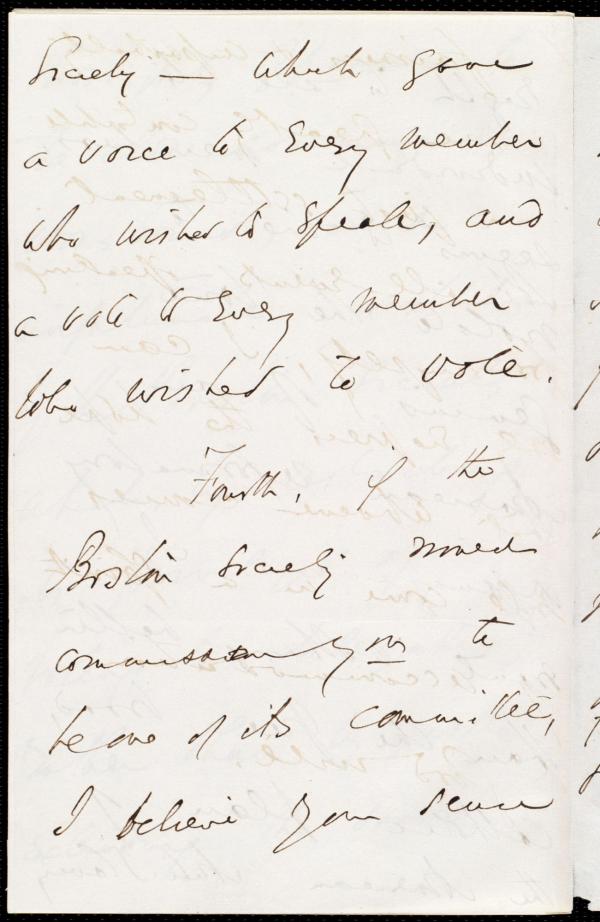 Society — which gave
a voice to every member
who wished to speak, and
a vote to every member
who wished to vote.
Fourth, if the
Boston Society would
commission you to
be one of its committee,
I believe your sense